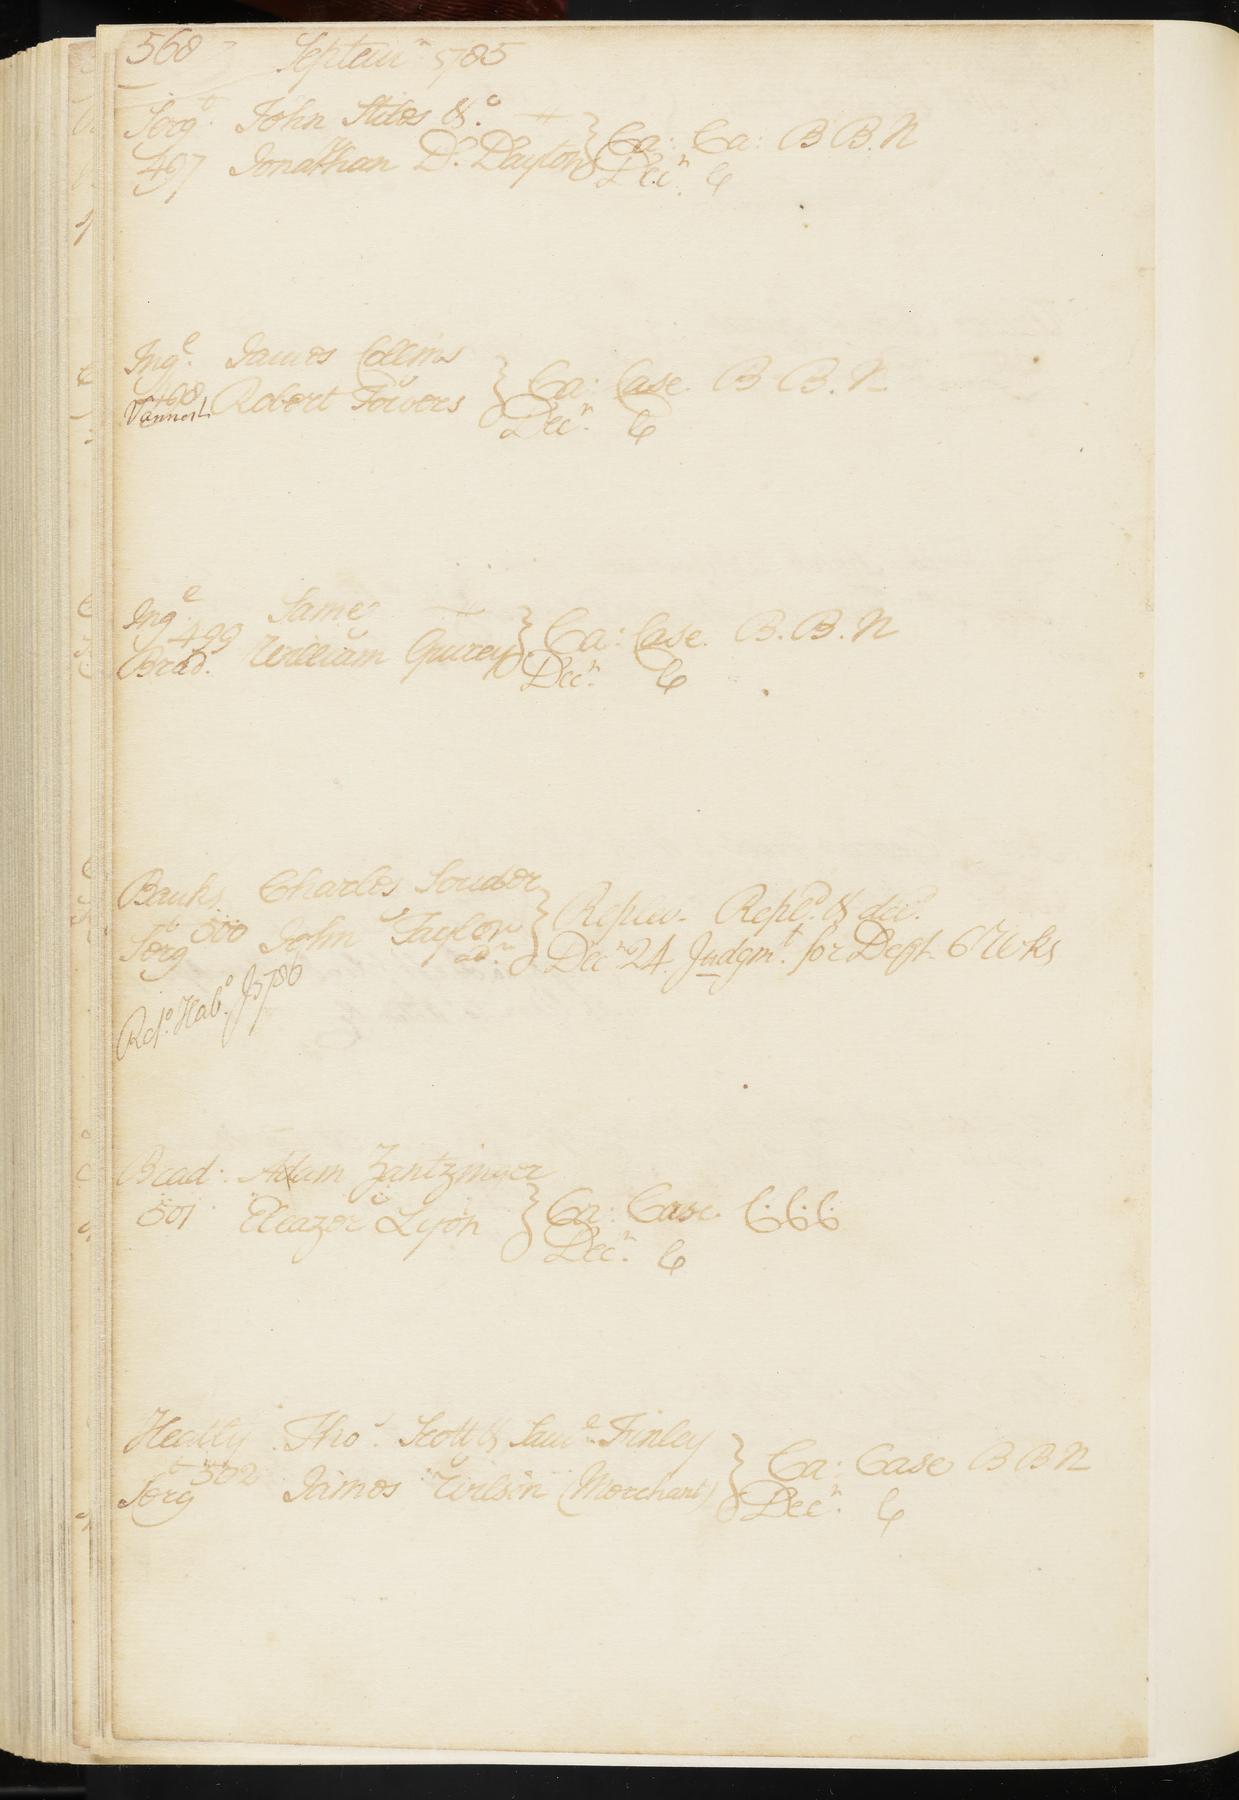 568 Septem^r 1785
Serg^t John Stiles & c^o
497 Jonathan D. Dayton } Ca: Ca: B B. N
Dec^n. C
Ing^e. James Collins
498 Robert Towers } Ca: Case. B B. N
Vannost. Dec^n. C
Ing^e Same
499 William Gurey } Ca: Case. B. B. N
Brad. Dec^n. C
Banks Charles Souder
500 John Taylor } Replev. Repl^d. & dec^d.
Serg^t ad^m. Dec^n 24. Judgm^t. for Deft. 6 Wks
Ret^o. Hab^o. J3 786
Brad. Adam Zantzinger
501 Eleazer Lyon } Ca: Case C.C.C.
Dec^n. C
Heatly Tho^s. Scott & Sam^l. Finley
502 James Wilson (Merchant) } Ca: Case B B N
Serg^t Dec^n. C